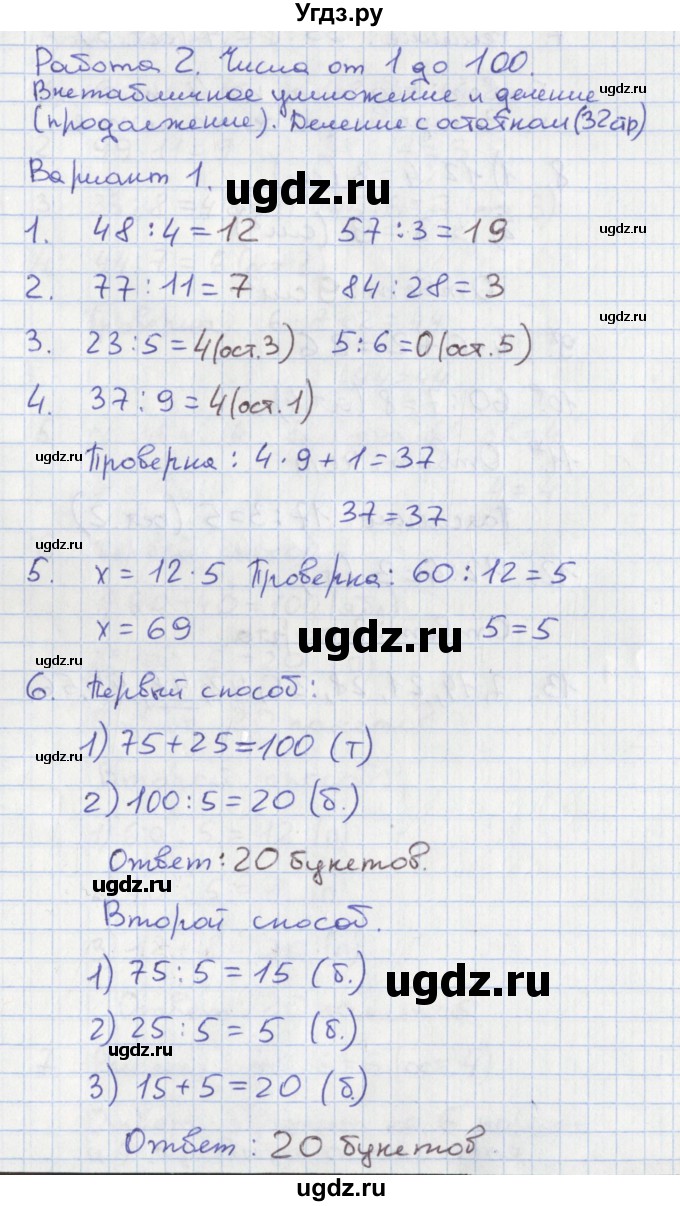 Угдз.ру
Работа 2. Числа от 1 до 100.
ugdz.ru
Внетабличное умножение и деление
(продолжение). Деление с остатком (32стр)
ugdz.ru
Вариант 1.
ugdz.ru
1. 48 : 4 = 12 57 : 3 = 19
ugdz.ru
2. 77 : 11 = 7 84 : 28 = 3
ugdz.ru
3. 23 : 5 = 4(ост.3) 5 : 6 = 0(ост.5)
4. 37 : 9 = 4(ост.1)
ugdz.ru
Проверка : 4 · 9 + 1 = 37
37 = 37
ugdz.ru
5. x = 12 · 5 Проверка : 60 : 12 = 5
x = 69 5 = 5
ugdz.ru
6. Первый способ :
1) 75 + 25 = 100 (т)
ugdz.ru
2) 100 : 5 = 20 (б.)
Ответ : 20 букетов.
ugdz.ru
Второй способ.
1) 75 : 5 = 15 (б.)
ugdz.ru
2) 25 : 5 = 5 (б.)
ugdz.ru
3) 15 + 5 = 20 (б.)
Ответ : 20 букетов.
ugdz.ru